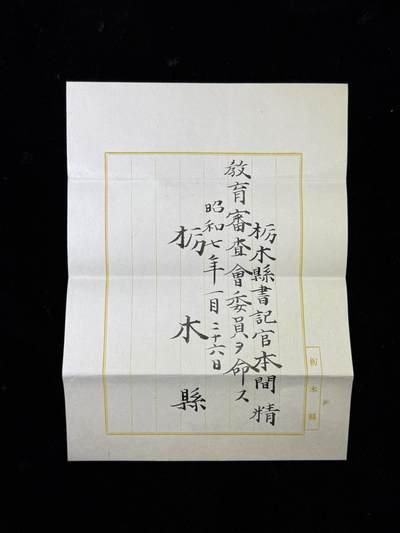 栃木縣書記官本間精
教育審査會委員ヲ命ス
昭和七年一月二十六日
栃木縣
栃木縣